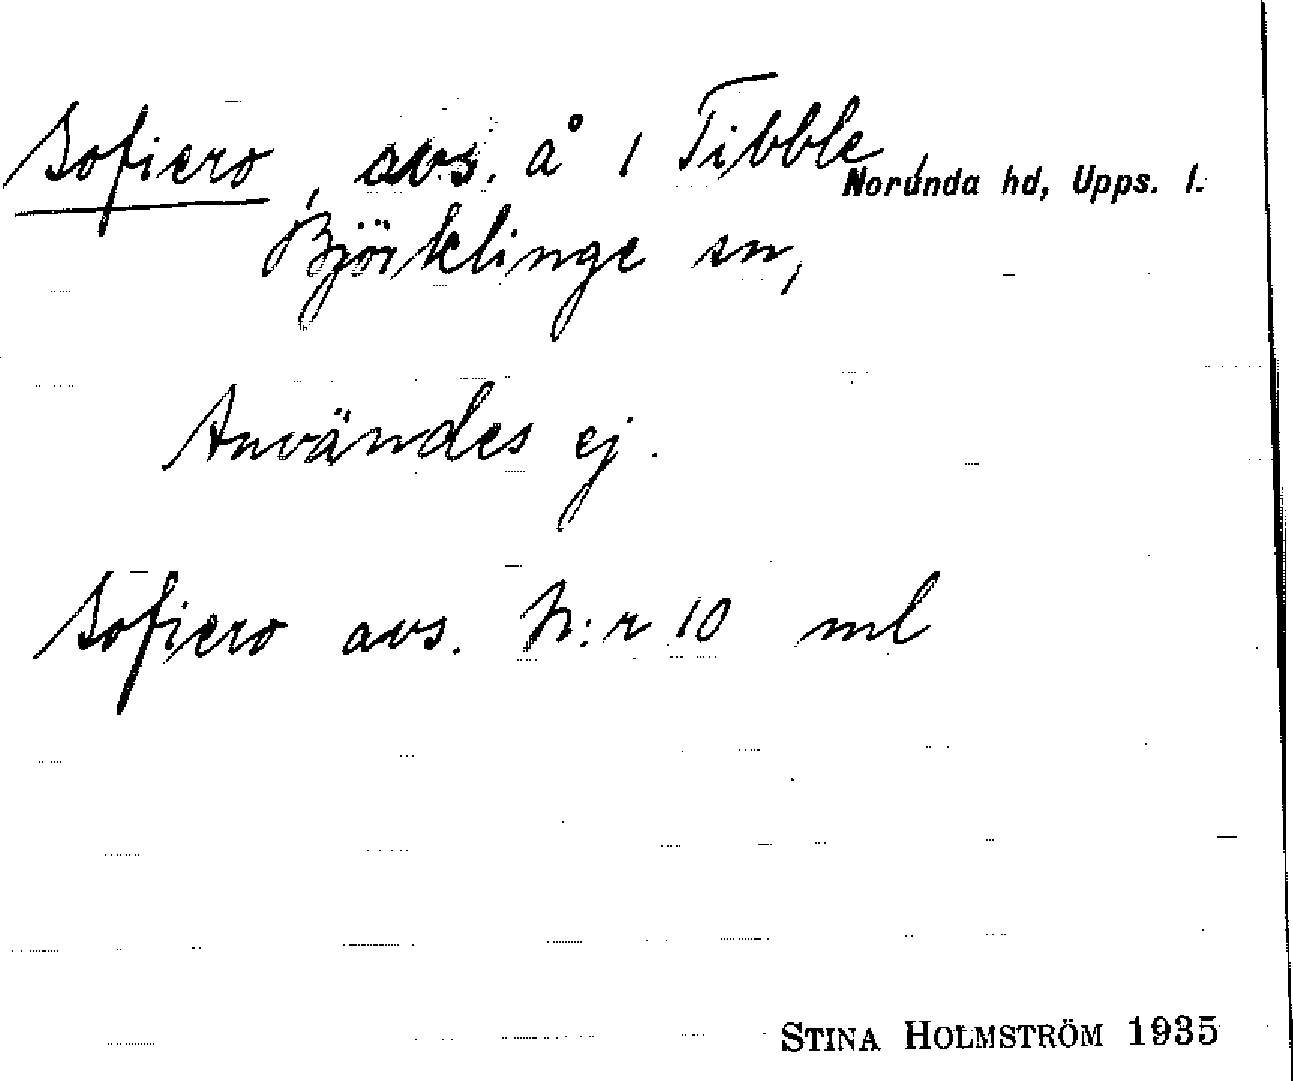 Sofiero, avs. å 1 Tibble,
Norunda hd, Upps. l.
Björklinge sn,
Användes ej.
Sofiero avs. N:r 10 ml
STINA HOLMSTRÖM 1935